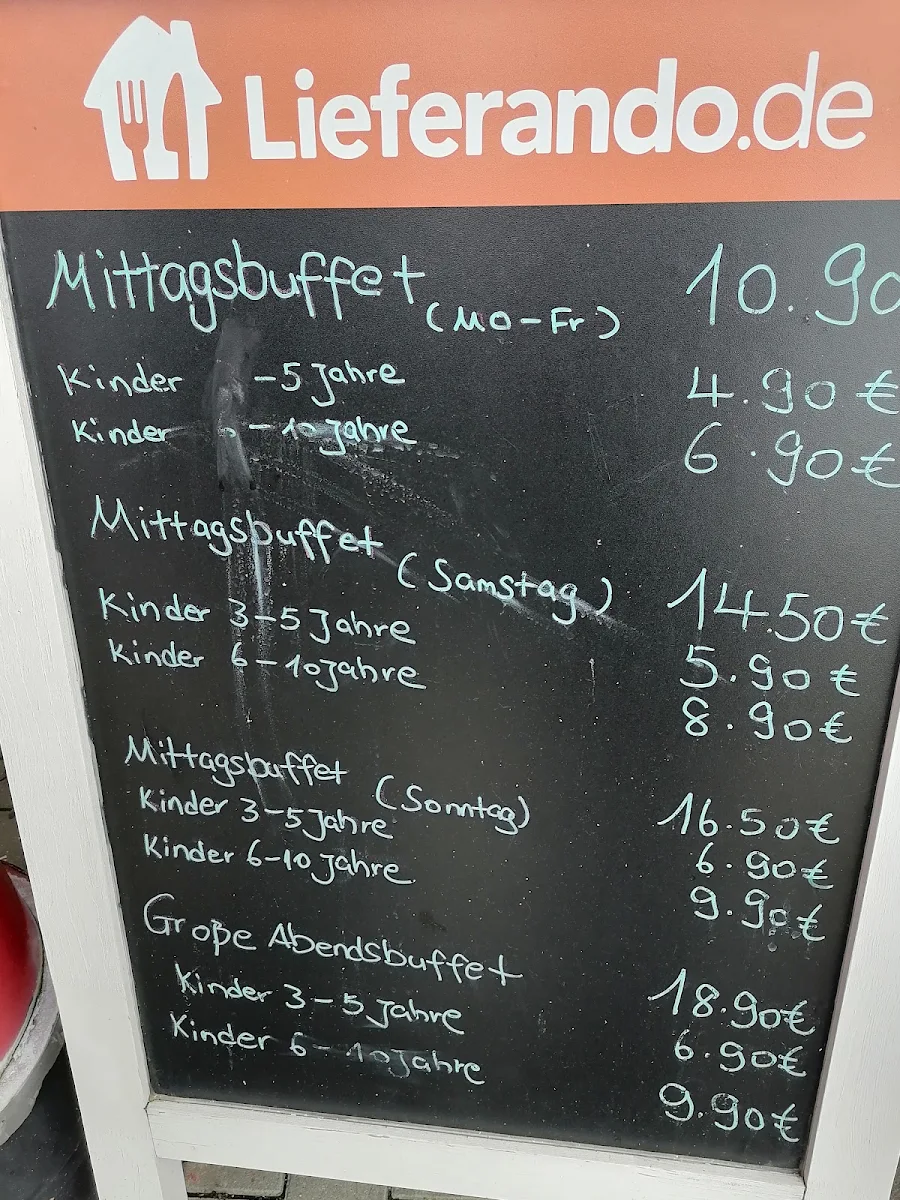 Lieferando.de
Mittagsbuffet (Mo-Fr) 10.90
Kinder -5 Jahre 4.90 €
Kinder - 10 Jahre 6.90 €
Mittagsbuffet (Samstag) 14.50 €
Kinder 3-5 Jahre 5.90 €
Kinder 6-10 Jahre 8.90 €
Mittagsbuffet (Sonntag) 16.50 €
Kinder 3-5 Jahre 6.90 €
Kinder 6-10 Jahre 9.90 €
Große Abendsbuffet 18.90 €
Kinder 3-5 Jahre 6.90 €
Kinder 6-10 Jahre 9.90 €